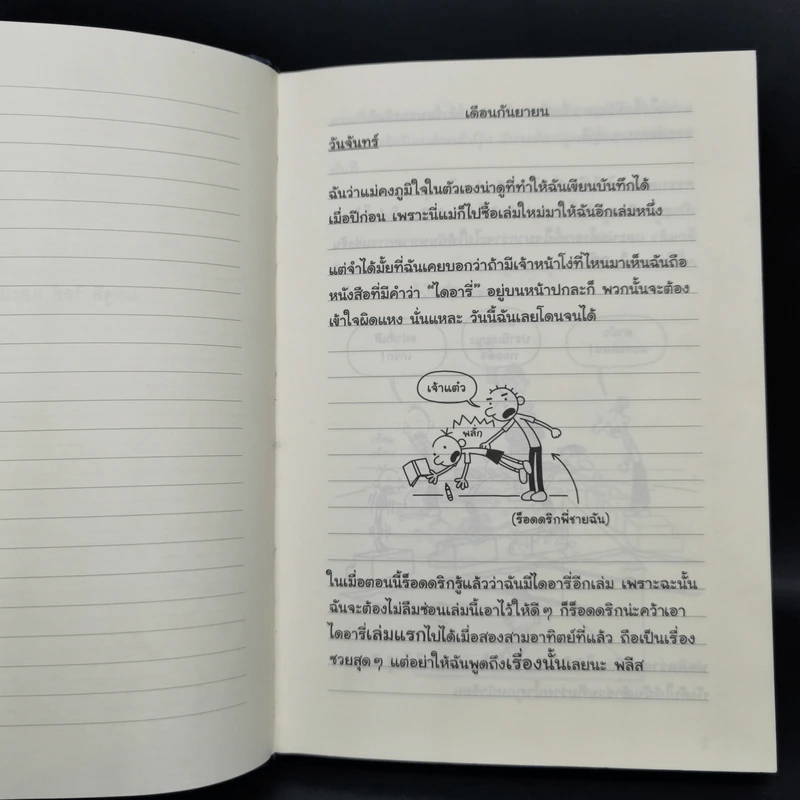 เดือนกันยายน
วันจันทร์
ฉันว่าแม่คงภูมิใจในตัวเองน่าดูที่ทำให้ฉันเขียนบันทึกได้
เมื่อปีก่อน เพราะนี่แม่ก็ไปซื้อเล่มใหม่มาให้ฉันอีกเล่มหนึ่ง
แต่จำได้มั้ยที่ฉันเคยบอกว่าถ้ามีเจ้าหน้าโง่ที่ไหนมาเห็นฉันถือ
หนังสือที่มีคำว่า “ไดอารี่” อยู่บนหน้าปกละก็ พวกนั้นจะต้อง
เข้าใจผิดแหง นั่นแหละ วันนี้ฉันเลยโดนจนได้
เจ้าแต๋ว
พลั่ก
(ร็อดดริกพี่ชายฉัน)
ในเมื่อตอนนี้ร็อดดริกรู้แล้วว่าฉันมีไดอารี่อีกเล่ม เพราะฉะนั้น
ฉันจะต้องไม่ลืมซ่อนเล่มนี้เอาไว้ให้ดีๆ ก็ร็อดดริกน่ะคว้าเอา
ไดอารี่เล่มแรกไปได้เมื่อสองสามอาทิตย์ที่แล้ว ถือเป็นเรื่อง
ซวยสุดๆ แต่อย่าให้ฉันพูดถึงเรื่องนั้นเลยนะ พลีส